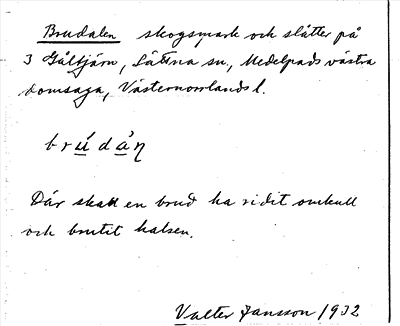 Brudalen skogsmark och slåtter på
3 Gåltjärn, Sättna sn., Medelpads västra
domsaga, Västernorrlands l.
brúdàn
Där skall en brud ha ridit omkull
och brutit halsen.
Valter Jansson 1932